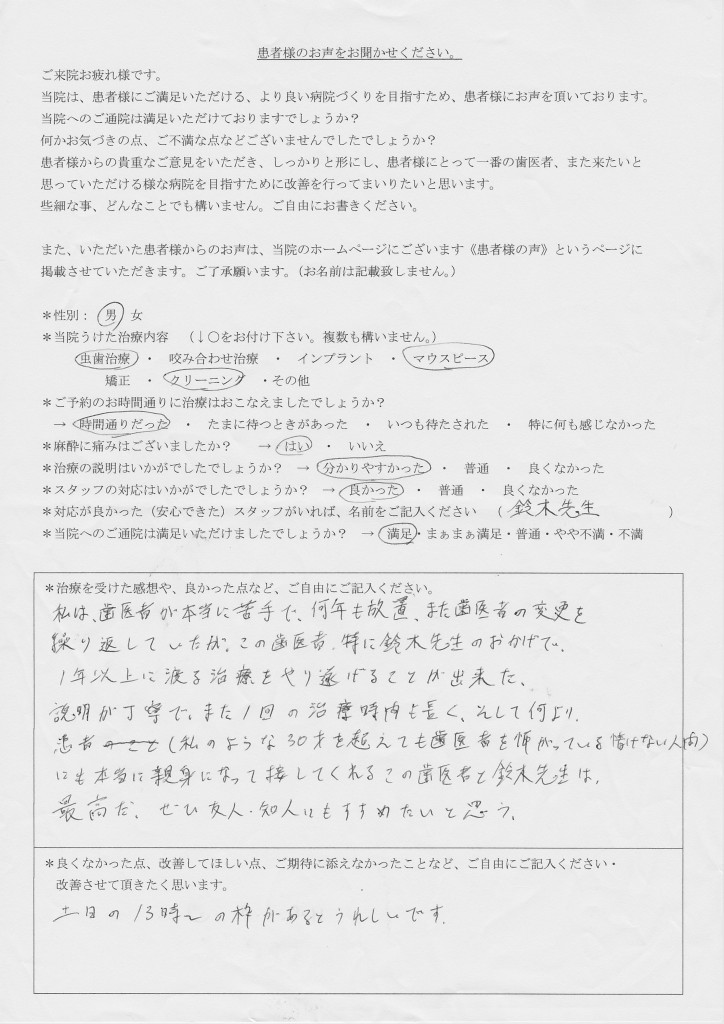 患者様のお声をお聞かせください。
ご来院お疲れ様です。
当院は、患者様にご満足いただける、より良い病院づくりを目指すため、患者様にお声を頂いております。
当院へのご通院は満足いただけておりますでしょうか？
何かお気づきの点、ご不満な点などございませんでしたでしょうか？
患者様からの貴重なご意見をいただき、しっかりと形にし、患者様にとって一番の歯医者、また来たいと
思っていただける様な病院を目指すために改善を行ってまいりたいと思います。
些細な事、どんなことでも構いません。ご自由にお書きください。
また、いただいた患者様からのお声は、当院のホームページにございます《患者様の声》というページに
掲載させていただきます。ご了承願います。（お名前は記載致しません。）
＊性別： 男 女
＊当院うけた治療内容 （↓○をお付け下さい。複数も構いません。）
虫歯治療 ・ 咬み合わせ治療 ・ インプラント ・ マウスピース
矯正 ・ クリーニング ・その他
＊ご予約のお時間通りに治療はおこなえましたでしょうか？
→ 時間通りだった ・ たまに待つときがあった ・ いつも待たされた ・ 特に何も感じなかった
＊麻酔に痛みはございましたか？ → はい ・ いいえ
＊治療の説明はいかがでしたでしょうか？ → 分かりやすかった ・ 普通 ・ 良くなかった
＊スタッフの対応はいかがでしたでしょうか？ → 良かった ・ 普通 ・ 良くなかった
＊対応が良かった（安心できた）スタッフがいれば、名前をご記入ください （ 鈴木先生 ）
＊当院へのご通院は満足いただけましたでしょうか？ → 満足・まぁまぁ満足・普通・やや不満・不満
＊治療を受けた感想や、良かった点など、ご自由にご記入ください。
私は、歯医者が本当に苦手で、何年も放置、また歯医者の変更を
繰り返していたが、この歯医者、特に鈴木先生のおかげで、
1年以上に渡る治療をやり遂げることが出来た。
説明が丁寧で、また1回の治療時間も長く、そして何より、
患者のこと（私のような30才を超えても歯医者を怖がっている情けない人間）
にも本当に親身になって接してくれるこの歯医者と鈴木先生は、
最高だ。ぜひ友人・知人にもすすめたいと思う。
＊良くなかった点、改善してほしい点、ご期待に添えなかったことなど、ご自由にご記入ください・
改善させて頂きたく思います。
土日の13時〜の枠があるとうれしいです。